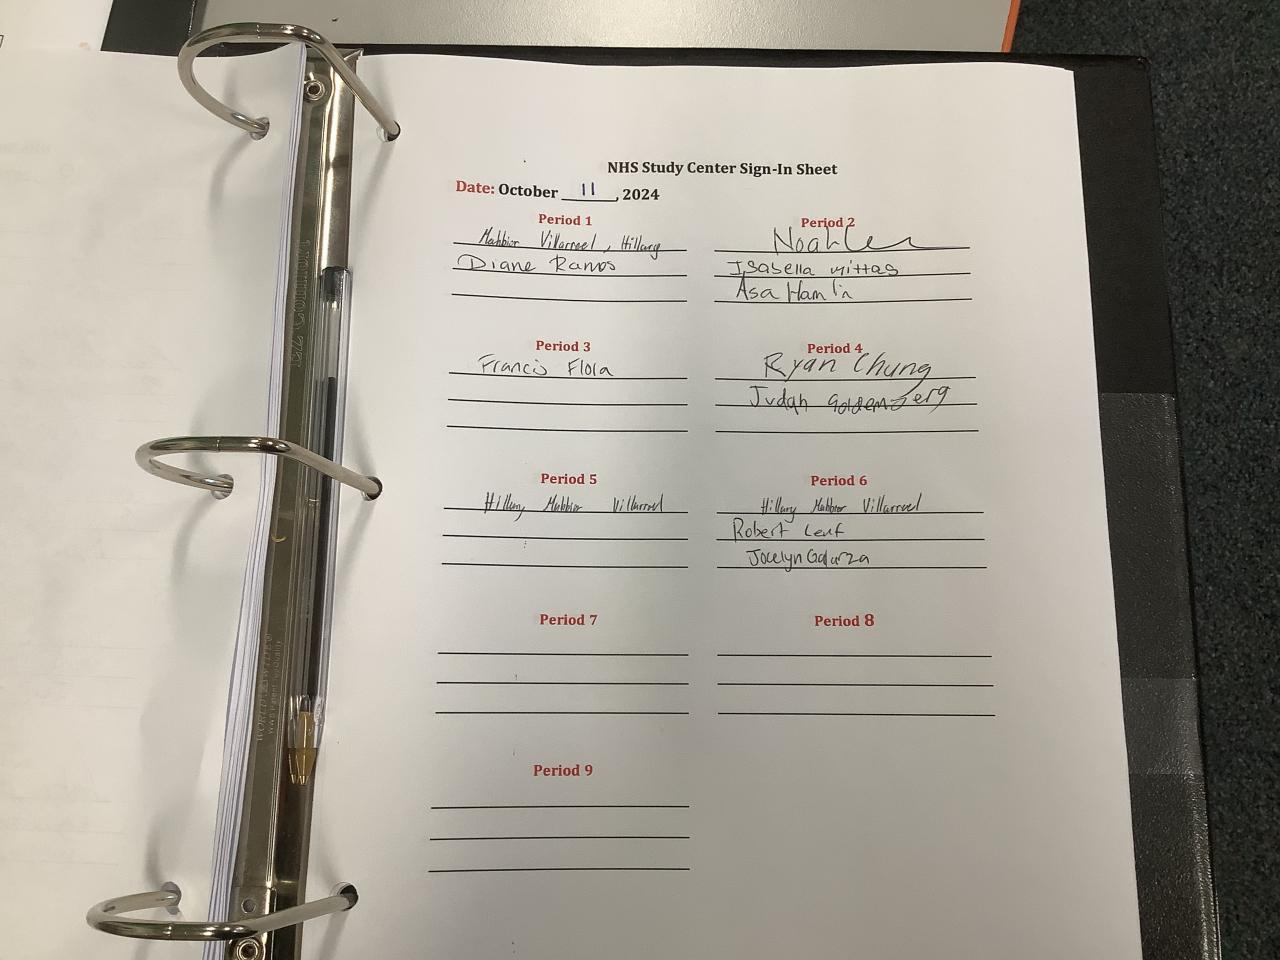 NHS Study Center Sign-In Sheet
Date: October 11, 2024
Period 1
Mahbior Villarroel, Hillary
Diane Ramos
Period 2
Noah Lee
Isabella Mittas
Asa Hamlin
Period 3
Francis Flora
Period 4
Ryan Chung
Judah Goldenberg
Period 5
Hillary Mahbior Villarroel
Period 6
Hillary Mahbior Villarroel
Robert
Jocelyn Galarza
Period 7
Period 8
Period 9